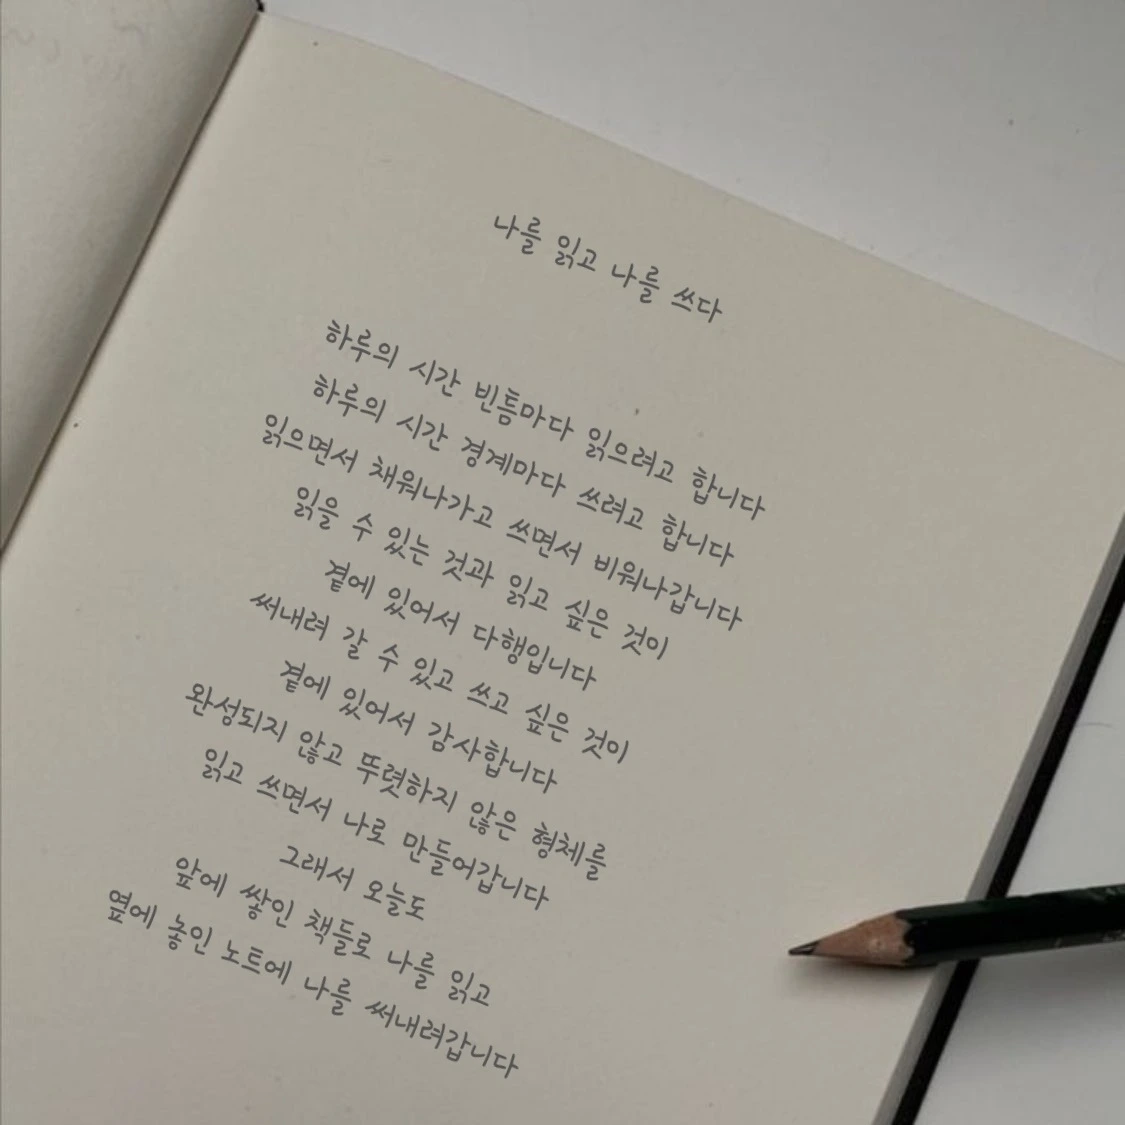 나를 읽고 나를 쓰다
하루의 시간 빈틈마다 읽으려고 합니다
하루의 시간 경계마다 쓰려고 합니다
읽으면서 채워나가고 쓰면서 비워나갑니다
읽을 수 있는 것과 읽고 싶은 것이
곁에 있어서 다행입니다
써내려 갈 수 있고 쓰고 싶은 것이
곁에 있어서 감사합니다
완성되지 않고 뚜렷하지 않은 형체를
읽고 쓰면서 나로 만들어갑니다
그래서 오늘도
앞에 쌓인 책들로 나를 읽고
옆에 놓인 노트에 나를 써내려갑니다